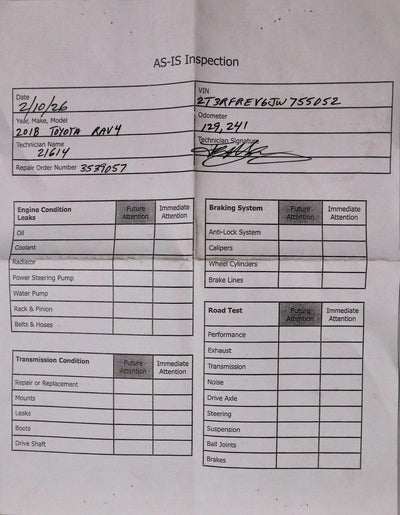 AS-IS Inspection
Date
2/10/26
VIN
2T3RFREV6JW755052
Year, Make, Model
2018 TOYOTA RAV4
Odometer
129,241
Technician Name
21614
Technician Signature
Repair Order Number 3539057
Engine Condition
Leaks
Future Attention
Immediate Attention
Oil
Coolant
Radiator
Power Steering Pump
Water Pump
Rack & Pinion
Belts & Hoses
Transmission Condition
Future Attention
Immediate Attention
Repair or Replacement
Mounts
Leaks
Boots
Drive Shaft
Braking System
Future Attention
Immediate Attention
Anti-Lock System
Calipers
Wheel Cylinders
Brake Lines
Road Test
Future Attention
Immediate Attention
Performance
Exhaust
Transmission
Noise
Drive Axle
Steering
Suspension
Ball Joints
Brakes